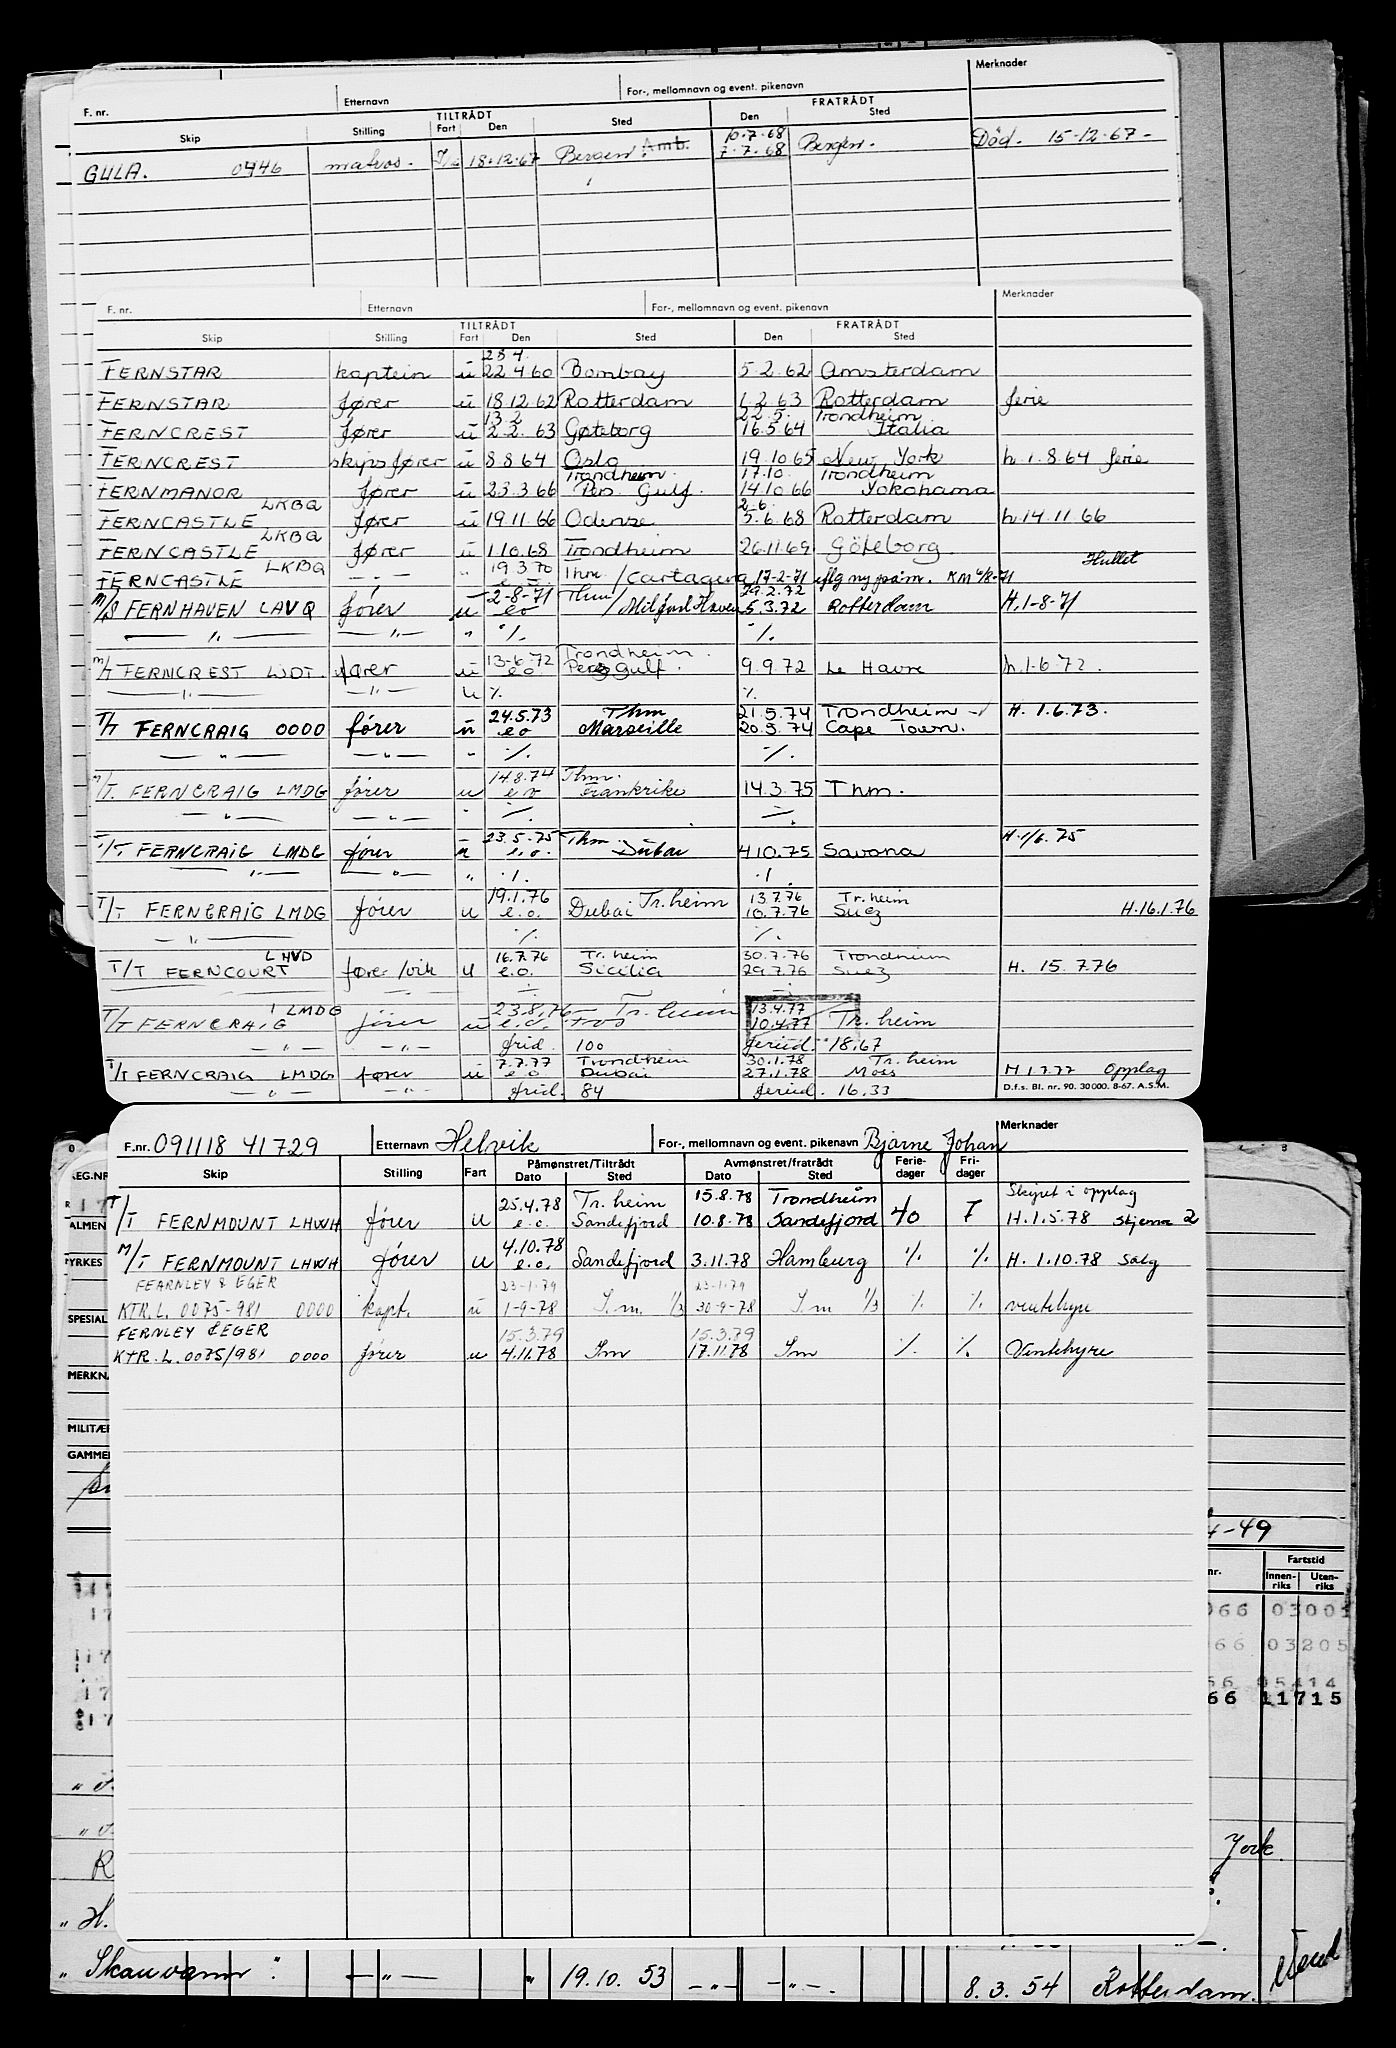 F. nr. Etternavn For-, mellomnavn og event. pikenavn Merknader
TILTRÅDT FRATRÅDT
Skip Stilling Fart Den Sted Den Sted
10.7.68
GULA. 0446 matros. 18.12.67 Bergen. Amb. 7.7.68 Bergen. Død. 15-12-67-
F. nr. Etternavn For-, mellomnavn og event. pikenavn Merknader
TILTRÅDT FRATRÅDT
Skip Stilling Fart Den Sted Den Sted
23 4.
FERNSTAR kaptein u 22 4 60 Bombay 5.2.62 Amsterdam
FERNSTAR fører u 18.12.62 Rotterdam 1.2.63 Rotterdam ferie
13 2 22.5. Trondheim
FERNCREST fører u 2.2. 63 Gøteborg 16.5.64 Italia
FERNCREST skipsfører u 8.8 64 Oslo 19.10.65 New York h.1.8.64 ferie
Trondheim. 17.10. Trondheim
FERNMANOR fører u 23.3.66 Pers. Gulf. 14.10.66 Yokohama
LKBQ 2-6.
FERNCASTLE fører u 19.11.66 Odense 5.6.68 Rotterdam h.14.11.66
LKBQ
FERNCASTLE fører u 1.10.68 Trondheim 26.11.69 Göteborg.
LKBQ 19.3.70 Hullet
FERNCASTLE -"- " e.o. Thm. / Cartagena 17-2-71
2-8-71 Thm 29.2.72
M/S FERNHAVEN LAVQ fører u eo / Milford Haven 5.3.72 Rotterdam H.1-8-71
" -"- " % %
13-6-72 Trondheim.
M/T FERNCREST fører u eo Pers Gulf. 9.9.72 Le Havre h.1.6.72.
" -"- u % %
24.5.73 Thm 21.5.74 Trondheim
T/T FERNCRAIG 0000 fører u eo Marseille 20.5.74 Cape Town. H. 1.6.73.
-"- -"- " % %
14.8.74 Thm.
M/T. FERNCRAIG LMDG fører u eo Frankrike 14.3.75 Thm.
-"- -"- " % %
23.5.75 Thm. H.1/6.75
T/T FERNCRAIG LMDG fører u e.o. Dubai 4.10.75 Savona
-"- -"- " % %
19.1.76 Tr.heim 13.7.76 Tr.heim
T/T FERNCRAIG LMDG fører u e.o. Dubai 10.7.76 Suez H.16.1.76
-"- % %
LHVD 16.7.76 Tr.heim 30.7.76 Trondheim
T/T FERNCOURT fører/vik u e.o. Sicilia 29.7.76 Suez H. 15.7.76
LMDG 23.8.76 Tr.heim 13.4.77
T/T FERNCRAIG fører u e.o. Fos 10.4.77 Tr.heim
-"- -"- frid. 100 feried. 18.67
7.7.77 Trondheim 30.1.78 Tr.heim
T/T FERNCRAIG LMDG fører u e o Dubai 27.1.78 Moss H 1.7.77 Opplag
-"- -"- frid. 84 feried. 16.33 D.f.s. Bl. nr. 90. 30000. 8-67. A.S.M.
F.nr. 091118 41729 Etternavn Helvik For-, mellomnavn og event. pikenavn Bjarne Johan Merknader
Påmønstret/Tiltrådt Avmønstret/fratrådt Ferie- Fri-
Skip Stilling Fart Dato Sted Dato Sted dager dager
25.4.78 Tr.heim 15.8.78 Trondheim Skipet i opplag
T/T FERNMOUNT LHWH fører u e.o. Sandefjord 10.8.78 Sandefjord 40 7 H.1.5.78 skjema 2
4.10.78
M/T FERNMOUNT LHWH fører u e.o. Sandefjord 3.11.78 Hamburg % % H. 1.10.78 Salg
FEARNLEY & EGER 23-1-79 23-1-79
KTR.L. 0075-981 0000 kapt. u 1-9-78 S.m. 1/3 30-9-78 S.m 1/3 % % ventehyre
FERNLEY & EGER 15.3.79 15.3.79
KTR.L.0075/981 0000 fører u 4.11.78 Sm 17.11.78 Sm % % Ventehyre
REG.NR
ALMEN
YRKES
SPESIAL
MERKNA
MILITÆR
GAMMEL
4-49
Fartstid
nr. Innen-riks Uten-riks
066 03001
66 03205
66 05414
66 11715
York.
" H.
" Skauvann". -"- " 19.10. 53 -"- -"-. 8.3.54 Rotterdam.